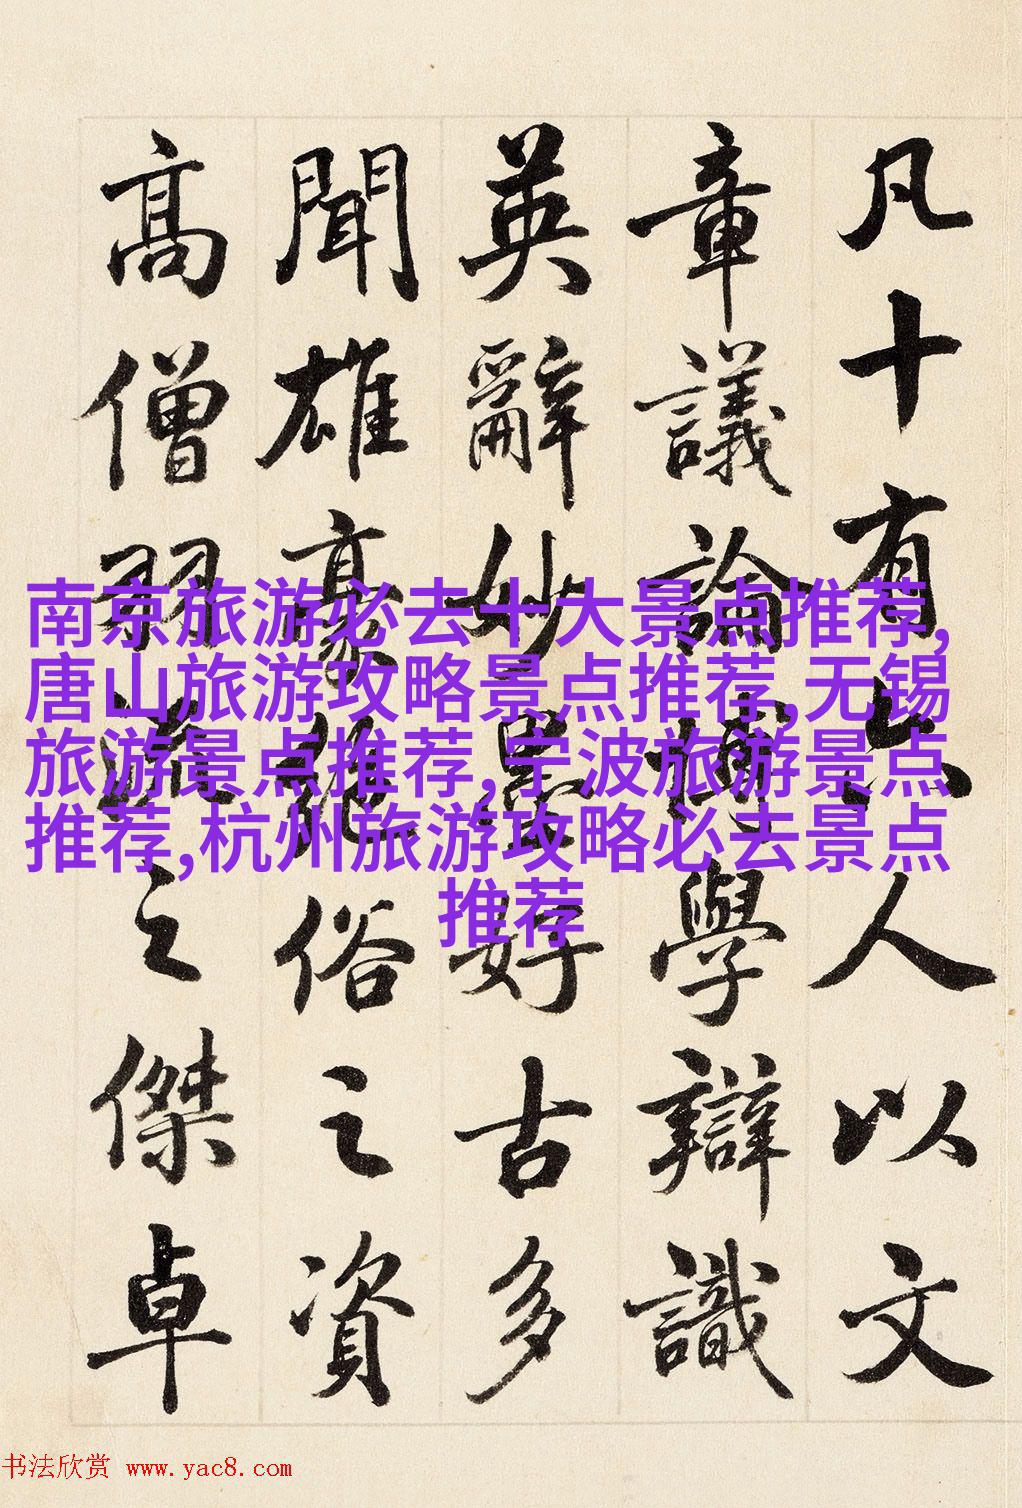 凡十有六人以文
章議論博學辯識
英辭妙墨好古多
聞雄豪絕俗之資
高僧羽流之傑卓
南京旅游必去十大景点推荐,
唐山旅游攻略景点推荐,无锡
旅游景点推荐,宁波旅游景点
推荐,杭州旅游攻略必去景点
推荐
书法欣赏 www.yac8.com